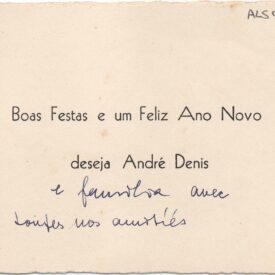 ALS
Boas Festas e um Feliz Ano Novo
deseja André Denis
e familia avec
toutes nos amitiés